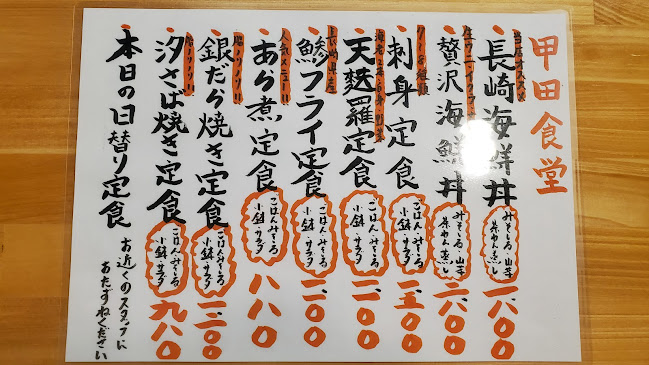 甲田食堂
当店オススメ
・長崎海鮮丼
みそしる・小鉢
茶わん蒸し
一、八〇〇
贅沢海鮮丼
みそしる・小鉢
茶わん蒸し
二、八〇〇
・刺身定食
ごはん・みそしる
小鉢・サラダ
一、五〇〇
・天麩羅定食
ごはん・みそしる
小鉢・サラダ
一、二〇〇
長崎県産
・鯵フライ定食
ごはん・みそしる
小鉢・サラダ
一、二〇〇
人気メニュー!!
・あら煮定食
ごはん・みそしる
小鉢・サラダ
八八〇
脂ノリノリ!!
・銀だら焼き定食
ごはん・みそしる
小鉢・サラダ
一、三〇〇
脂ノリノリ!!
・汐さば焼き定食
ごはん・みそしる
小鉢・サラダ
九八〇
・本日の日替り定食
お近くのスタッフに
おたずねください